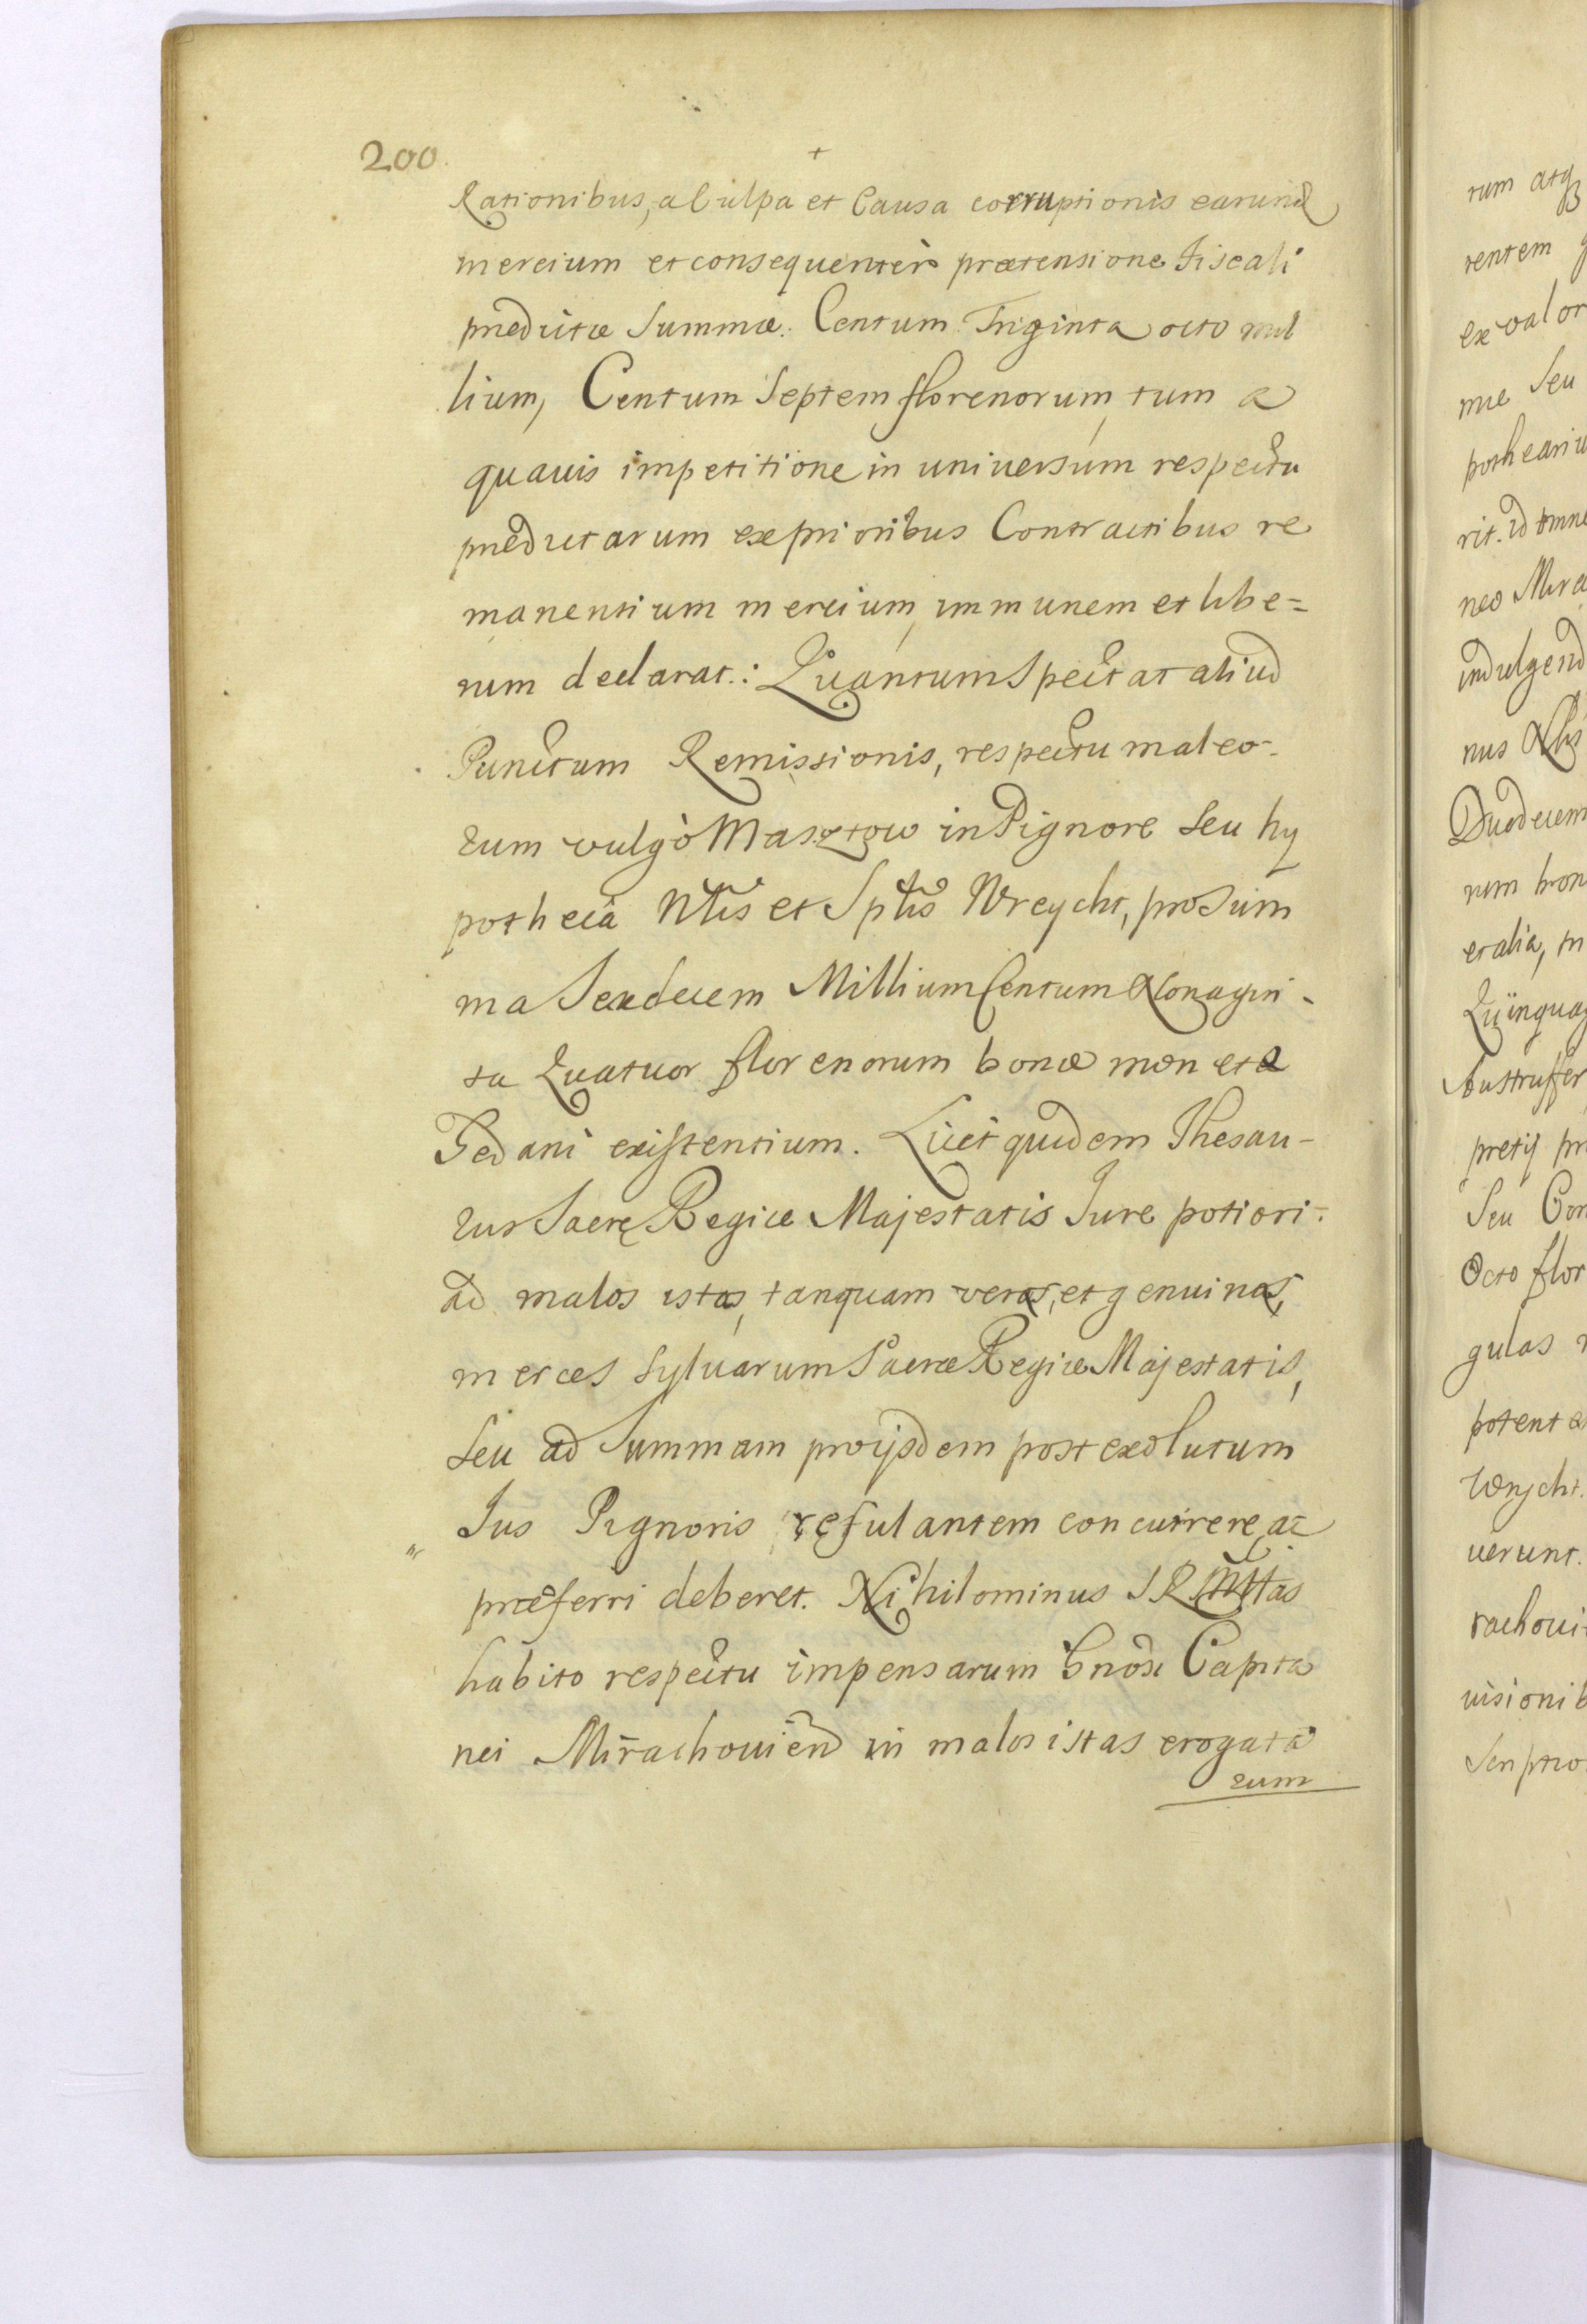 200.
Rationibus, a Culpa et Causa corruptionis earund
mercium et consequenter prætensione Fiscali
prædictæ Summæ. Centum Triginta octo mil
lium, Centum Septem florenorum, tum a
quauis impetitione in universum respectu
prædictarum ex prioribus Contractibus re
manentium mercium, immunem et libe=
rum declarat.: Quantum Spectat aliud
Punctum Remissionis, respectu maleo-
rum vulgò Masztow in Pignore seu hy
pothecâ Nlis et Sptlis Wreycht, pro Sum
ma Sexdecem Millium Centum Nonagin-
ta Quatuor florenorum bonæ monetæ
Gedani existentium. Licet quidem Thesau-
rus Sacrę Regiæ Majestatis Jure potiori
ad malos istas, tanquam veras, et genuinas,
merces Sylvarum Sacræ Regiæ Majestatis,
Seu ad Summam pro ijsdem post exolutum
Jus Pignoris resultantem concurrere, ac
præferri deberet. Nihilominus S R Mttas
habito respectu impensarum Gnosi Capita
nei Mirachouien in malos istas erogata
rum
rum atq
rentem
ex valor
me Seu
pothecariu
rit. Id omne
neo Mira
indulgend
nus Nlis
Duodecem
rum bon
et alia, in
Quinquag
Austruffer
pretij pr
Seu Con
Octo flor
gulas
potent a
Wrycht.
uerunt.
rachoui
uisionib
Scriptio